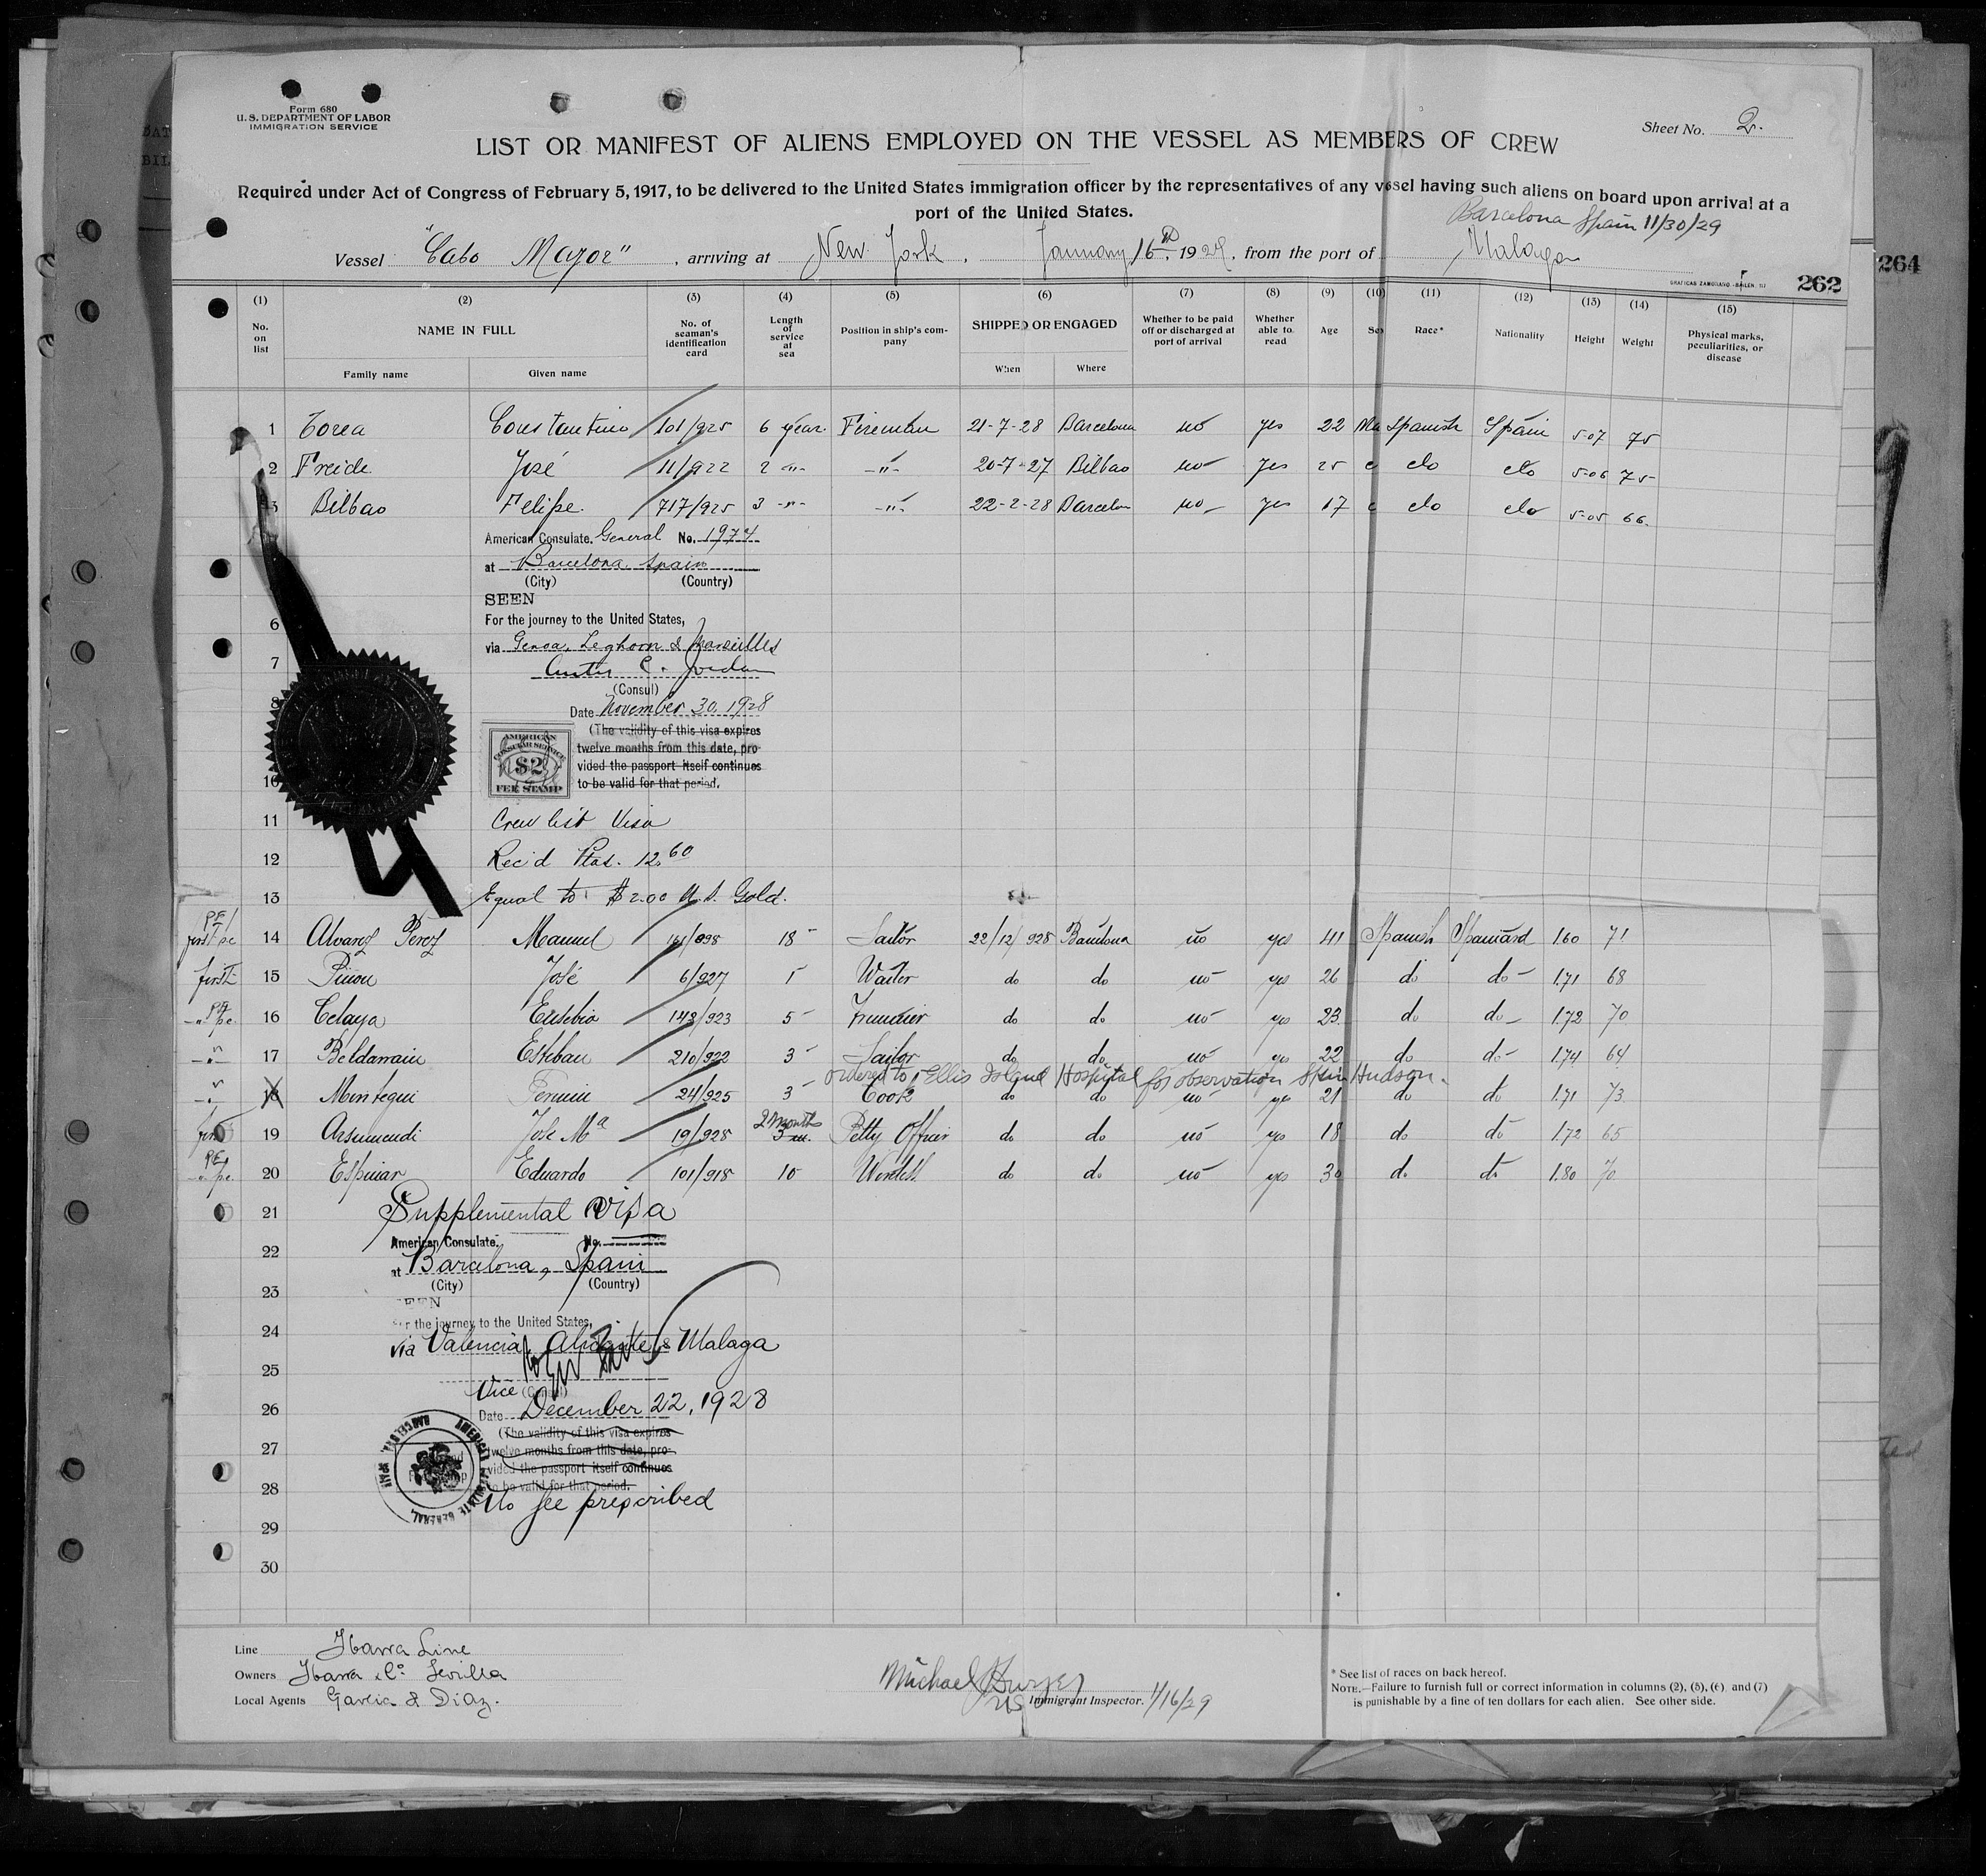 Form 680
U. S. DEPARTMENT OF LABOR
IMMIGRATION SERVICE
Sheet No. 2.
LIST OR MANIFEST OF ALIENS EMPLOYED ON THE VESSEL AS MEMBERS OF CREW
Required under Act of Congress of February 5, 1917, to be delivered to the United States immigration officer by the representatives of any vessel having such aliens on board upon arrival at a
port of the United States.
Barcelona Spain 11/30/29
Vessel "Cabo Mayor", arriving at New York, January 16th, 1929, from the port of Malaga
GRAFICAS ZAMORANO.-BAILEN.
262
264
(1) (2) (3) (4) (5) (6) (7) (8) (9) (10) (11) (12) (13) (14) (15)
No. on list
NAME IN FULL
Family name Given name
No. of seaman's identification card
Length of service at sea
Position in ship's company
SHIPPED OR ENGAGED
When Where
Whether to be paid off or discharged at port of arrival
Whether able to read
Age
Sex
Race*
Nationality
Height
Weight
Physical marks, peculiarities, or disease
1 Torea Constantino 101/925 6 year. Fireman 21-7-28 Barcelona no yes 22 Ma Spanish Spain 5-07 75
2 Freide José 11/922 2 -"- -"- 20-7-27 Bilbao no yes 25 do do 5-06 75
3 Bilbao Felipe. 717/925 3 -"- -"- 22-2-28 Barcelon no yes 17 do do 5-05 66.
American Consulate. General No. 1974
at Barcelona Spain
(City) (Country)
SEEN
6 For the journey to the United States,
via Genoa, Leghorn & Marseilles
7 C. Jordan
(Consul)
8 Date November 30, 1928
(The validity of this visa expires
twelve months from this date, pro-
vided the passport itself continues
to be valid for that period.
AMERICAN
CONSULAR SERVICE
$2
FEE STAMP
10
11 Crew list Visa
12 Rec'd Ptas. 12.60
13 Equal to $2.00 U.S. Gold.
first pc 14 Alvarez Perez Manuel 18 Sailor 22/12/928 Barcelona no yes 41 Spanish Spaniard 1.60 71
first 15 José 6/927 1 Waiter do do no yes 26 do do 1.71 68
16 Celaya Eusebio 143/923 5 do do no yes 23 do do 1.72 70
17 Beldarrain Esteban 210/922 3 Sailor do do no yes 22 do do 1.74 64
ordered to Ellis Island Hospital for observation Hudson.
18 Fermin 24/925 3 Cook do do no yes 21 do do 1.71 73
first 19 Jose Ma 19/928 2 months Petty Officer do do no yes 18 do do 1.72 65
20 Espinar Eduardo 101/918 10 do do no yes 30 do do 1.80 70
21 Supplemental Visa
22 American Consulate. No.
at Barcelona, Spain
(City) (Country)
23 SEEN
24 For the journey to the United States,
via Valencia, Alicante & Malaga
25
Vice (Consul)
26 Date December 22, 1928
(The validity of this visa expires
27 twelve months from this date, pro-
vided the passport itself continues
28 to be valid for that period.
No fee prescribed
AMERICAN CONSULATE GENERAL, BARCELONA, SPAIN
29
30
Line Ybarra Line
Owners Ybarra & Co. Sevilla
Local Agents Garcia & Diaz.
Michael
US Immigrant Inspector. 1/16/29
* See list of races on back hereof.
NOTE.—Failure to furnish full or correct information in columns (2), (5), (6) and (7)
is punishable by a fine of ten dollars for each alien. See other side.